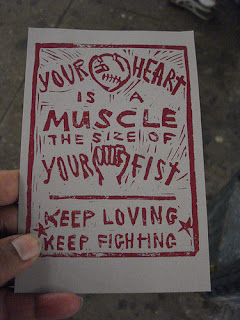 YOUR HEART
IS A
MUSCLE
THE SIZE OF
YOUR FIST
KEEP LOVING
KEEP FIGHTING